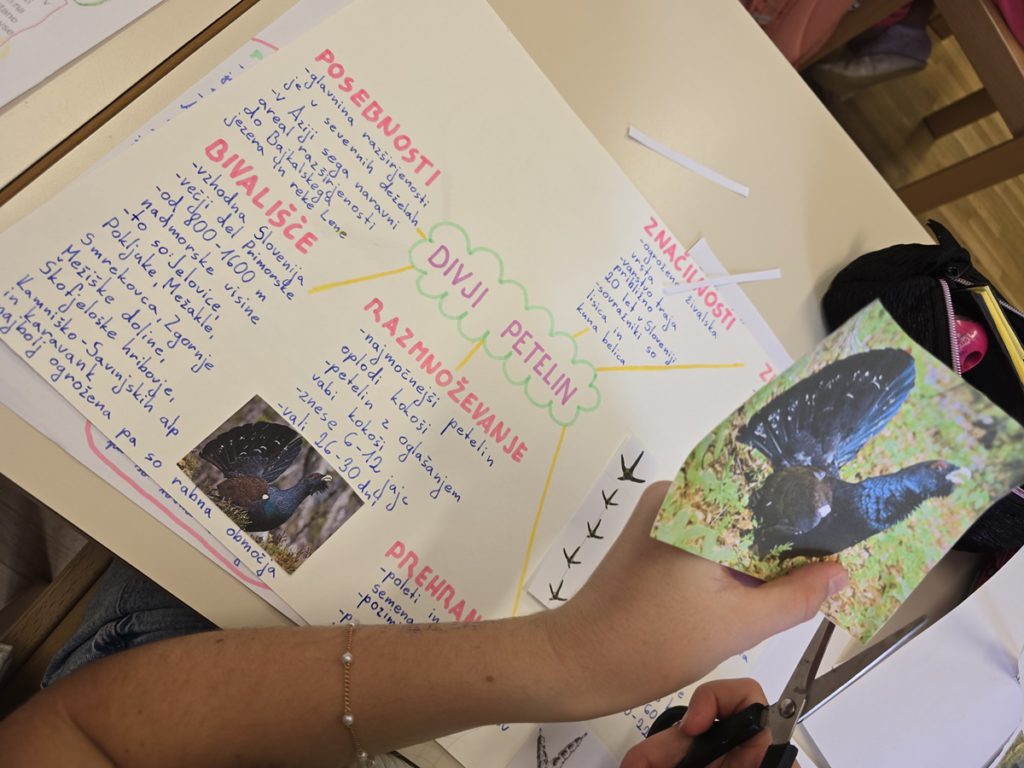 POSEBNOSTI
-glavnina razširjenosti
je v severnih deželah
-v Aziji sega naravni
areal razširjenosti
do Bajkalskega
jezera in reke Lene
BIVALIŠČE
-vzhodna Slovenija
-večji del Primorske
-od 900-1600 m
nadmorske višine
to so Jelovice,
Pokljuke, Mežakle,
Smrekovca, Zgornje
Mežiške doline,
Škofjeloške hribovje,
Kamniško-Savinjskih alp
in karavank
najbolj ogrožena pa so
rabna območja
DIVJI
PETELIN
RAZMNOŽEVANJE
-najmočnejši petelin
oplodi kokoši
-petelin z oglašanjem
vabi kokoši
-znese 6-12 jajc
-vali 26-30 dni
ZNAČILNOSTI
-ogrožena živalska
vrsta
-varstvo traja
20 let v Sloveniji
-sovražniki so
lisica in
kuna belica
PREHRAN
-poleti in
semena
-pozim